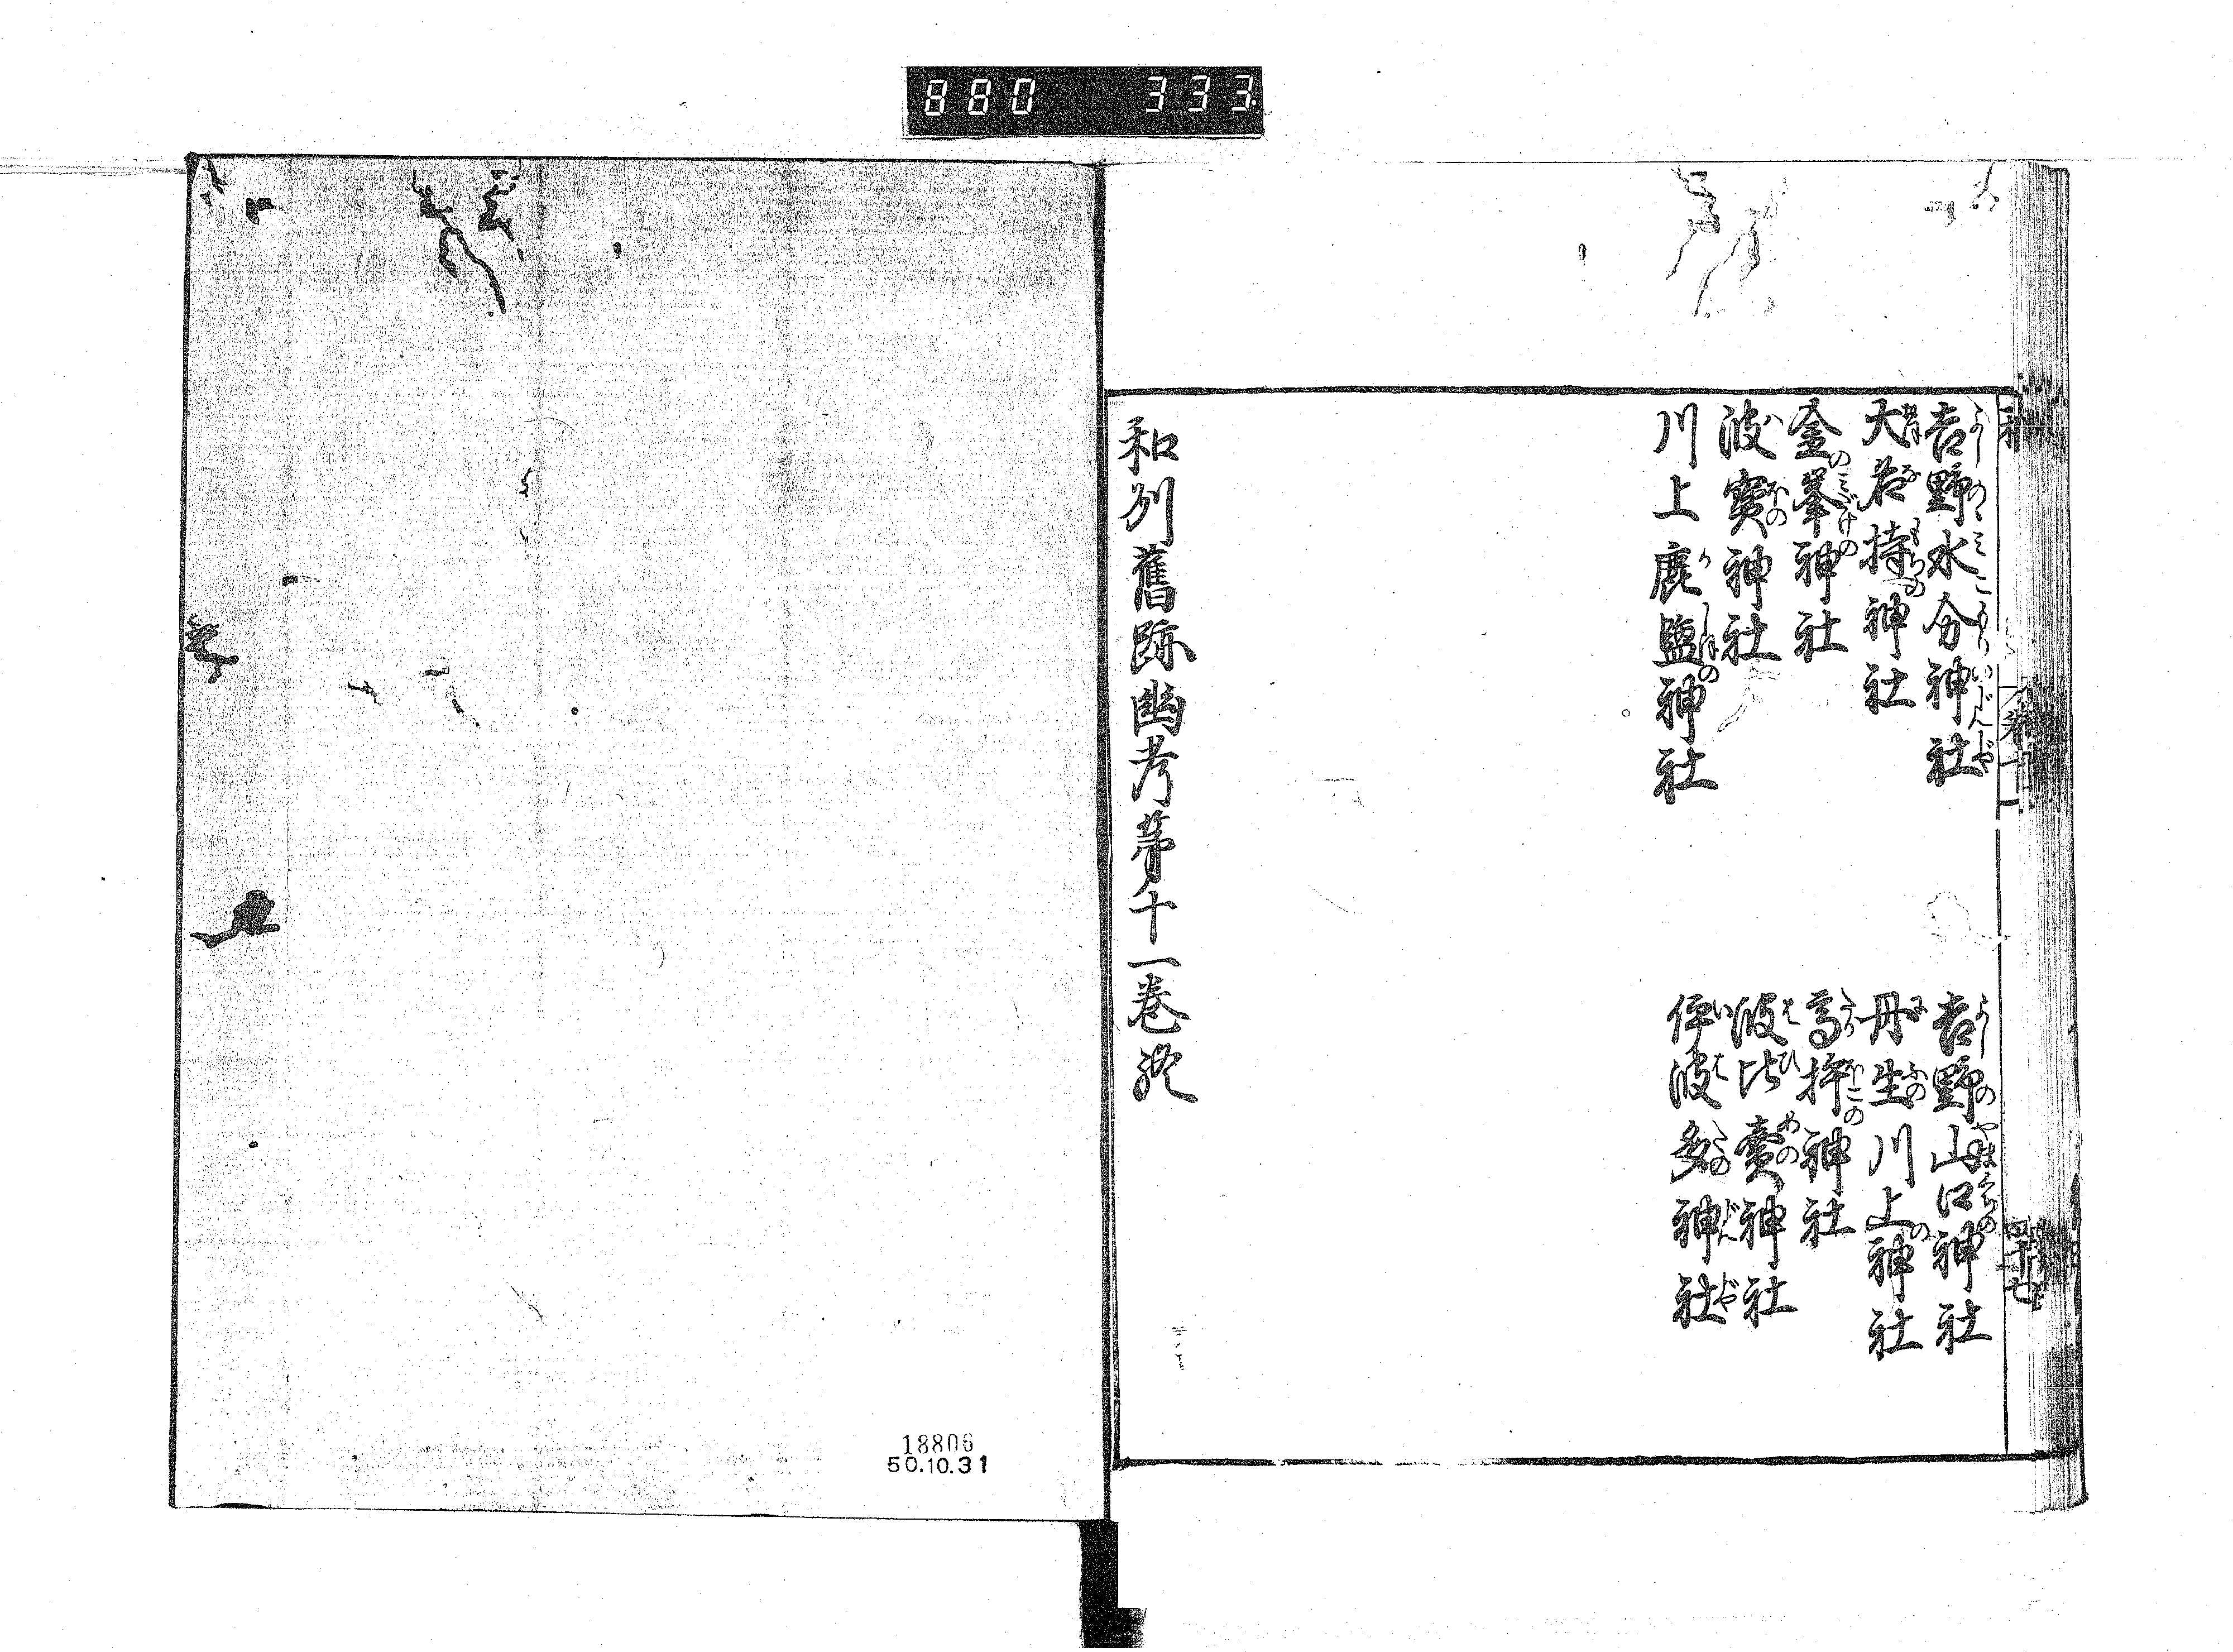 880 333
吉野水分神社
吉野山口神社
大名持神社
丹生川上神社
金峯神社
高桙神社
波寶神社
波比賣神社
川上鹿鹽神社
伊波多神社
和州舊跡幽考第十一卷終
18806
50.10.31